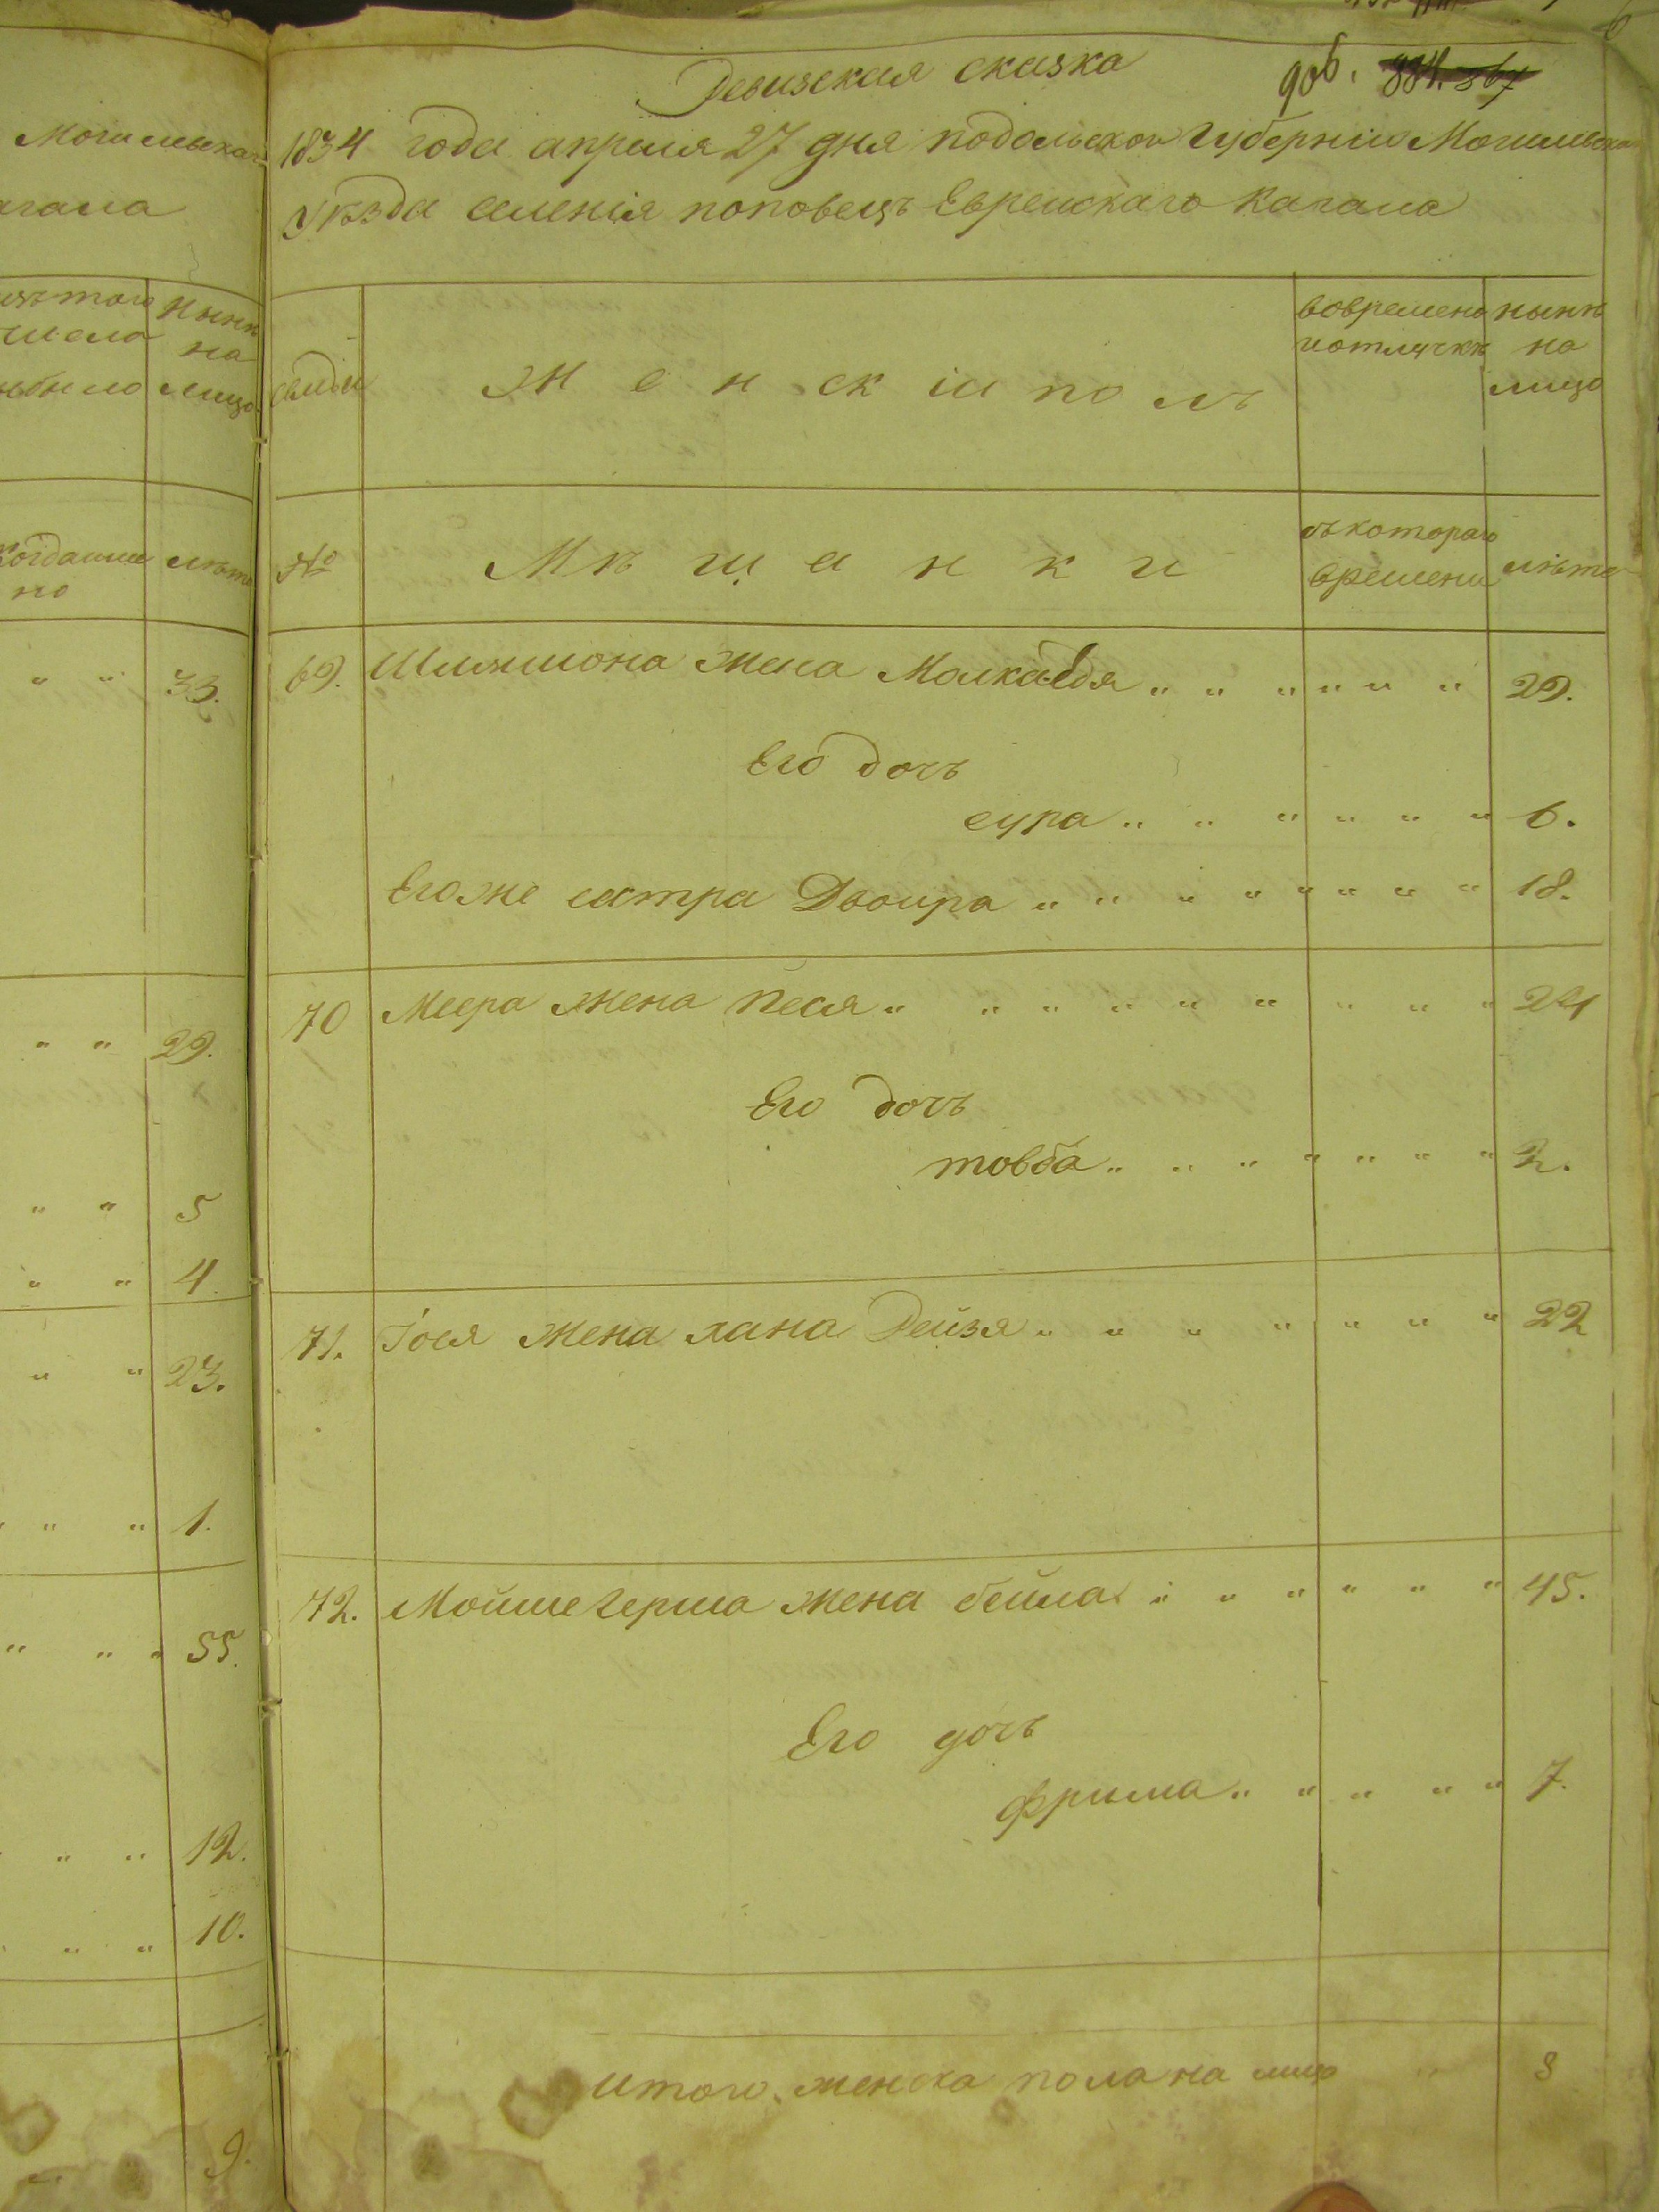 Могилевскаго
Кагала
изъ того
числа
выбыло
Ныне
на
лицо
когда именно
лета
" " 33.
" " 29.
" " 5
" " 4.
" " 23.
" " 1.
" " 55.
" " 12.
" " 10.
9.
Ревизская сказка
906. 884. 867
1834 года апреля 27 дня подольской Губерніи Могилевскаго
Уѣзда селенія поповецъ Еврейскаго Кагала
семьи
Женскій полъ
вовремено
иотлучкѣ
нынѣ
на
лицо
№
Мѣщанки
съкотораго
времени
лѣта
69. Шлямиона жена Малка Едя " " " " " " 29.
Его дочъ
сура " " " " " " 6.
Егоже сестра Двойра " " " " " " " " 18.
70 Меера жена Песя " " " " " " " " " 24
Его дочъ
товба " " " " " " " 2.
71. Іося жена хана Рейзя " " " " " " " 22
72. Мойше герша жена бейла " " " " " " 45.
Его дочъ
фрима " " " " " 7.
итого женска пола на лицо " 8